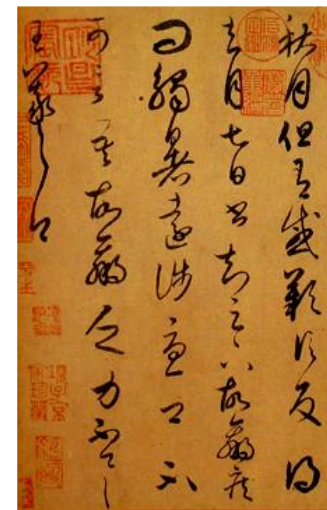 秋月但有感歎信反得
去月七日書知足下故羸疾
問觸暑遠涉憂卿不
可言吾故羸乏力不具
王羲之白